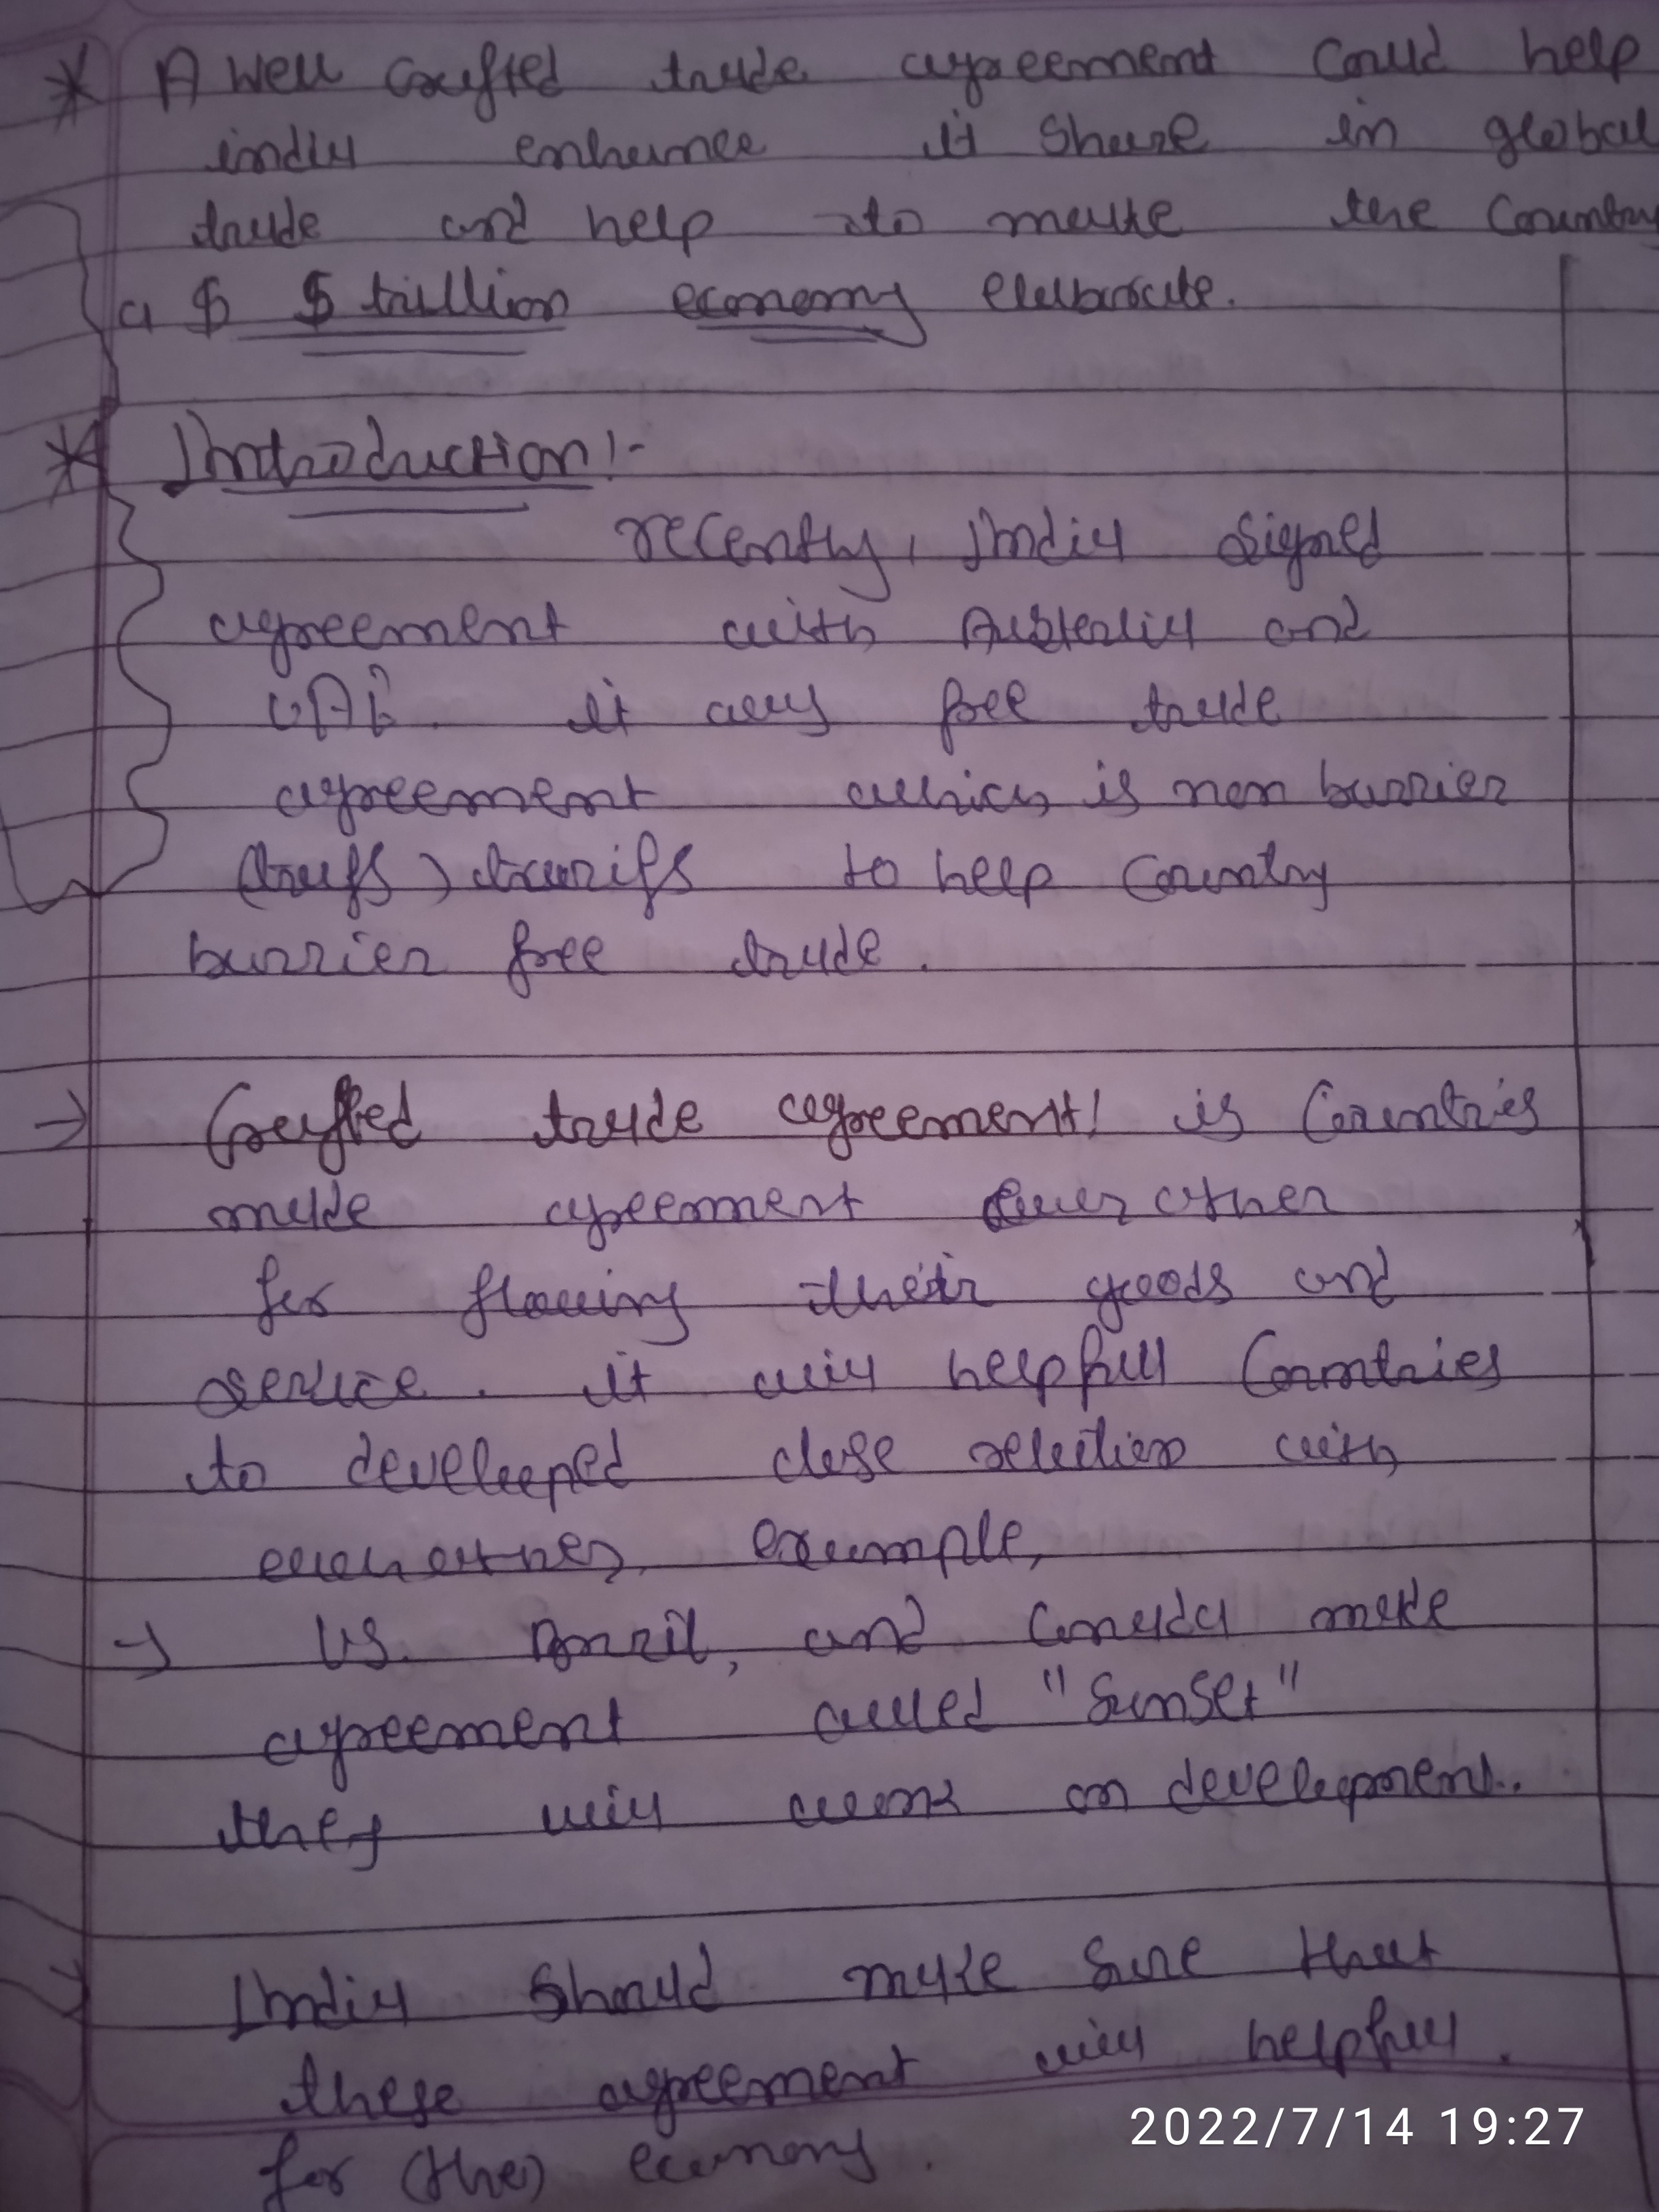 * A well crafted trade agreement could help
india enhance it share in global
trade and help to make the country
a $ $ trillion economy elaborate.
* Introduction :-
recently, India signed
agreement with Australia and
UAE. it was free trade
agreement which is non barrier
(trafs) tarrifs to help country
barrier free trade.
→ Crafted trade agreement! is Countries
made agreement other
for flowing their goods and
service. it will helpfull Countries
to developed close relation with
eachother, example,
→ US. Brazil, and Canada make
agreement called "Sunset"
they will work on development.
→ India should make sure that
these agreement will helpfull.
for (the) economy.
2022/7/14 19:27